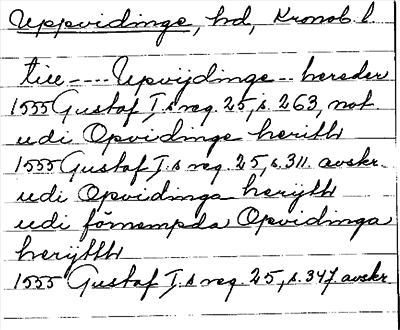 Uppvidinge, hd, Kronob. l.
till ---- Upvijdinge -- hereder
1555 Gustaf I:s reg. 25, s. 263, not.
udi Opvidinge heritth
1555 Gustaf I:s reg. 25, s. 311. avskr.
udi Opvidinga herijtth
udi förnempda Opvidinga
herijttth
1555 Gustaf I:s reg. 25, s. 347 avskr